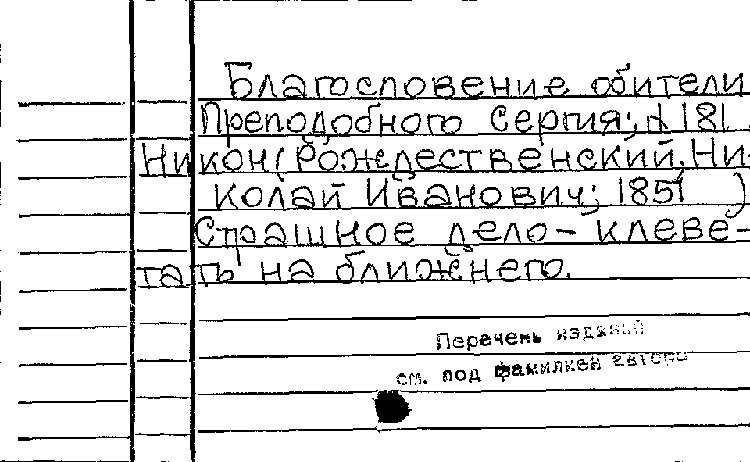 Благословение обители
Преподобного Сергия; № 181.
Никон (Рождественский, Ни-
колай Иванович; 1851 )
Страшное дело – клеве-
тать на ближнего.
Перечень изданий
см. под фамилией автора